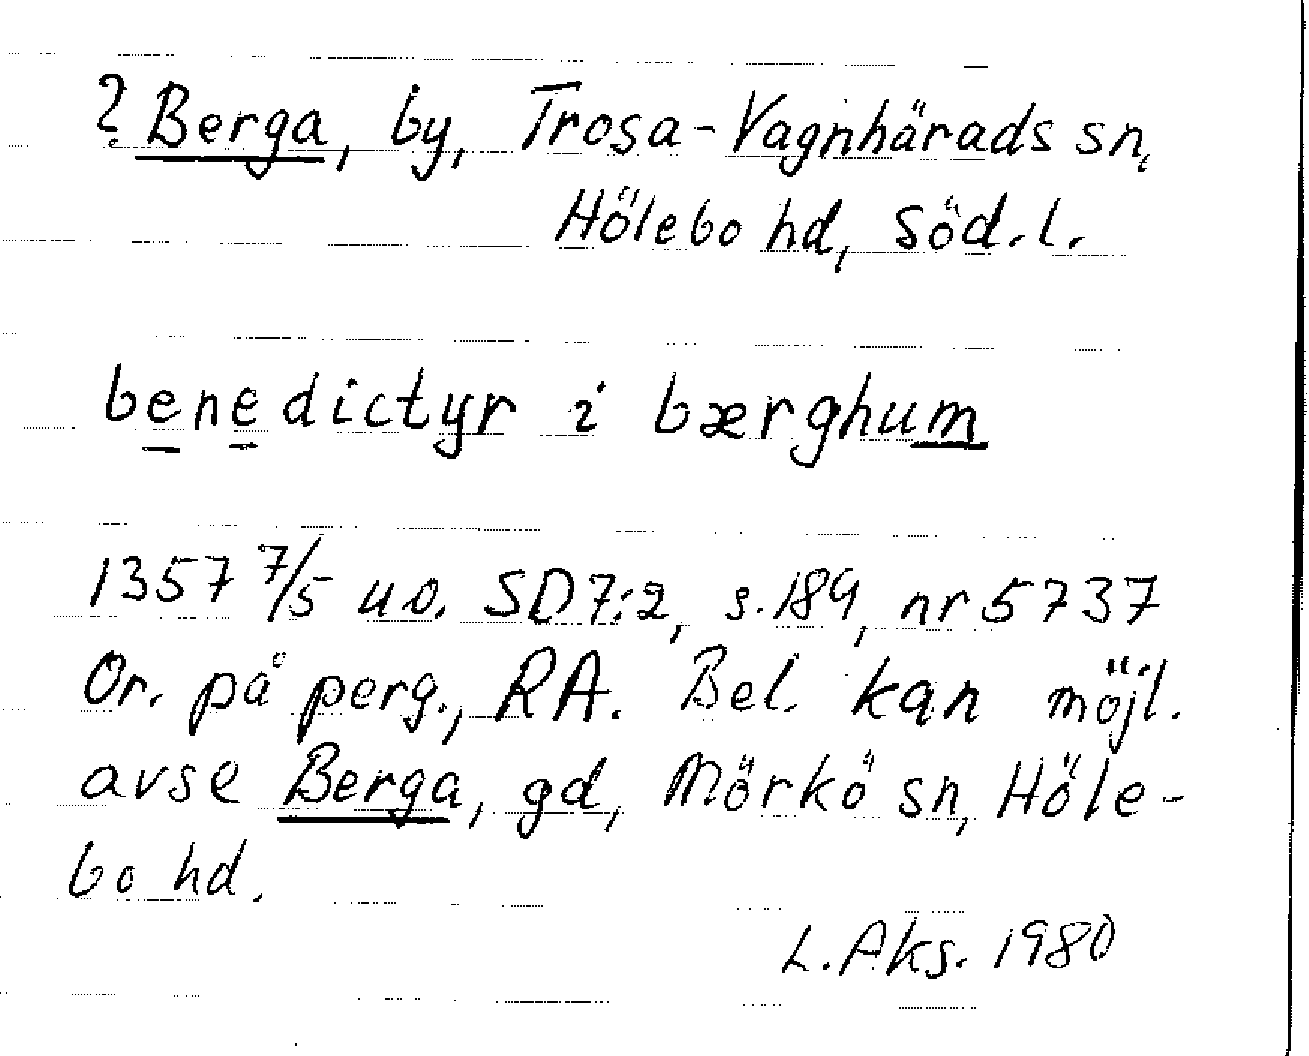 ? Berga, by, Trosa-Vagnhärads sn,
Hölebo hd, Söd.l.
benedictyr i bærghum
1357 7/5 u.o. SD7:2, s.189, nr 5737
Or. på perg., RA. Bel. kan möjl.
avse Berga, gd, Mörkö sn, Höle-
bo hd.
L.Aks. 1980